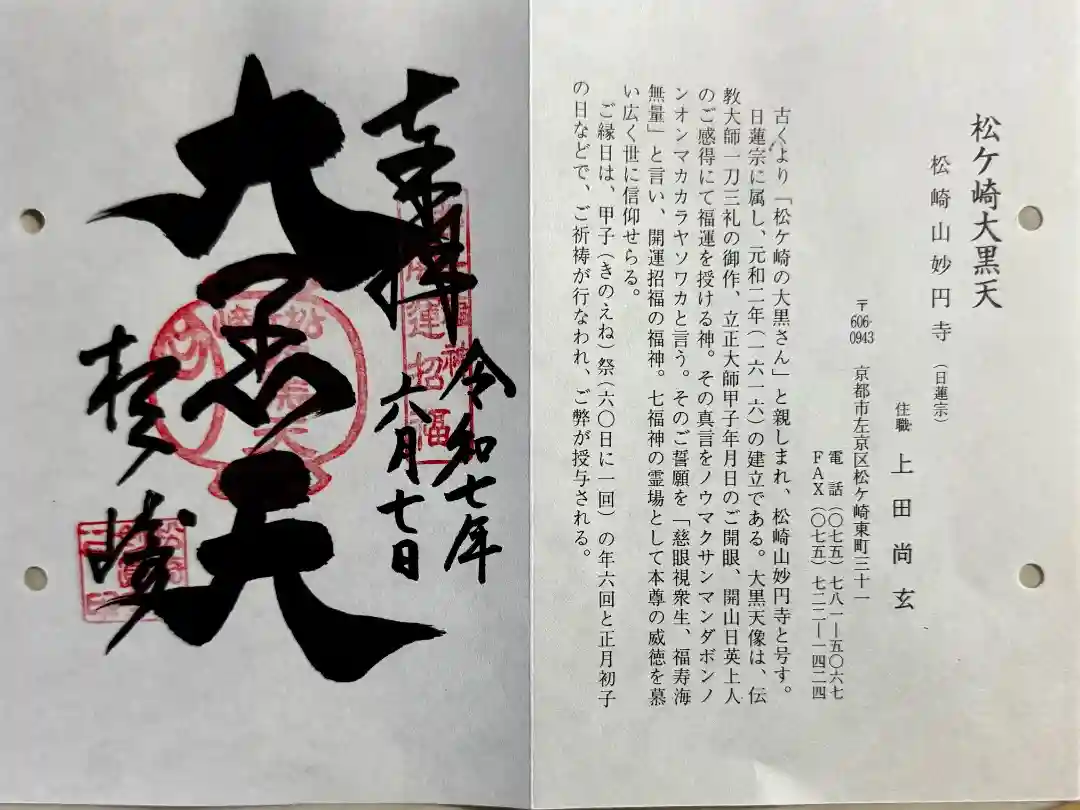 松ケ崎大黒天
松崎山妙円寺（日蓮宗）
住職 上田尚玄
〒606-0943 京都市左京区松ケ崎東町三十一
電話（〇七五）七八一―五〇六七
FAX（〇七五）七二二―一四二四
古くより「松ケ崎の大黒さん」と親しまれ、松崎山妙円寺と号す。
日蓮宗に属し、元和二年（一六一六）の建立である。大黒天像は、伝
教大師一刀三礼の御作、立正大師甲子年月日のご開眼、開山日英上人
のご感得にて福運を授ける神。その真言をノウマクサンマンダボンノ
ンオンマカカラヤソワカと言う。そのご誓願を「慈眼視衆生、福寿海
無量」と言い、開運招福の福神。七福神の霊場として本尊の威徳を慕
い広く世に信仰せらる。
ご縁日は、甲子（きのえね）祭（六〇日に一回）の年六回と正月初子
の日などで、ご祈祷が行なわれ、ご弊が授与される。
奉拝
令和七年
六月七日
大黒天
松ヶ崎